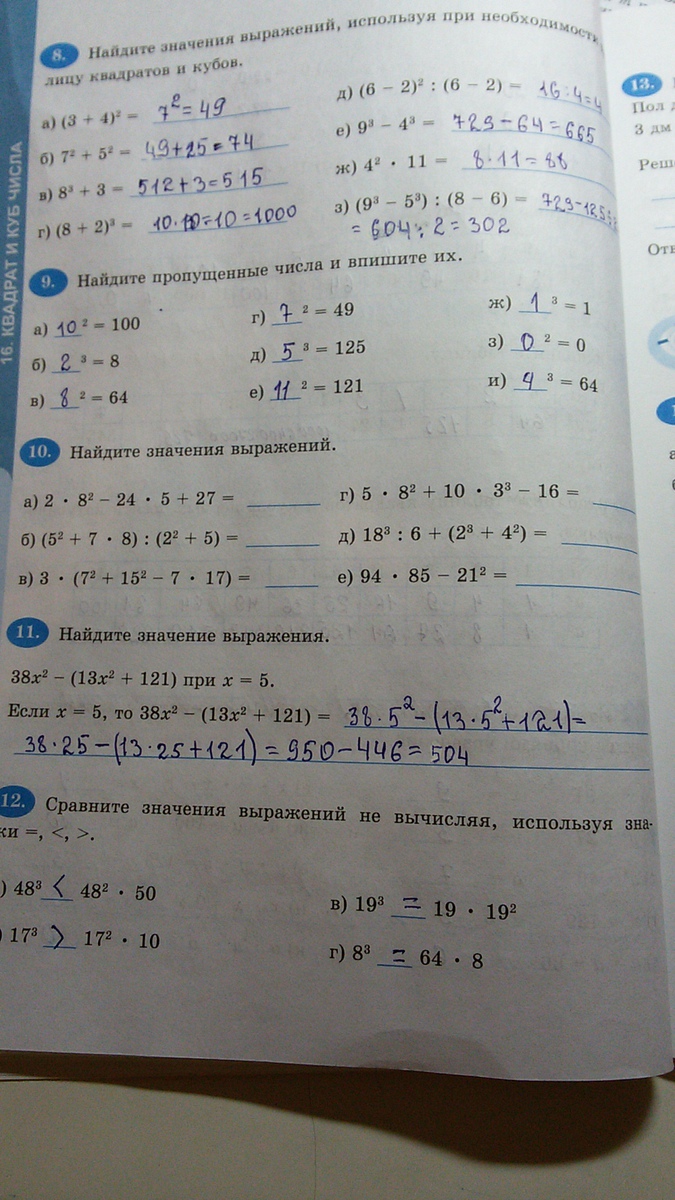 16. КВАДРАТ И КУБ ЧИСЛА
8. Найдите значения выражений, используя при необходимости
лицу квадратов и кубов.
а) (3 + 4)² = 7² = 49
б) 7² + 5² = 49+25 = 74
в) 8³ + 3 = 512+3=515
г) (8 + 2)³ = 10·10=10=1000
д) (6 − 2)² : (6 − 2) = 16:4=4
е) 9³ − 4³ = 729−64=665
ж) 4² · 11 = 8·11=88
з) (9³ − 5³) : (8 − 6) = 729−125
= 604 : 2 = 302
9. Найдите пропущенные числа и впишите их.
а) 10 ² = 100
б) 2 ³ = 8
в) 8 ² = 64
г) 7 ² = 49
д) 5 ³ = 125
е) 11 ² = 121
ж) 1 ³ = 1
з) 0 ² = 0
и) 4 ³ = 64
10. Найдите значения выражений.
а) 2 · 8² − 24 · 5 + 27 =
б) (5² + 7 · 8) : (2² + 5) =
в) 3 · (7² + 15² − 7 · 17) =
г) 5 · 8² + 10 · 3³ − 16 =
д) 18³ : 6 + (2³ + 4²) =
е) 94 · 85 − 21² =
11. Найдите значение выражения.
38x² − (13x² + 121) при x = 5.
Если x = 5, то 38x² − (13x² + 121) = 38·5²−(13·5²+121)=
38·25−(13·25+121)=950−446=504
12. Сравните значения выражений не вычисляя, используя зна-
ки =, <, >.
) 48³ < 48² · 50
) 17³ > 17² · 10
в) 19³ = 19 · 19²
г) 8³ = 64 · 8
13.
Пол
3 дм
Реш
Отв